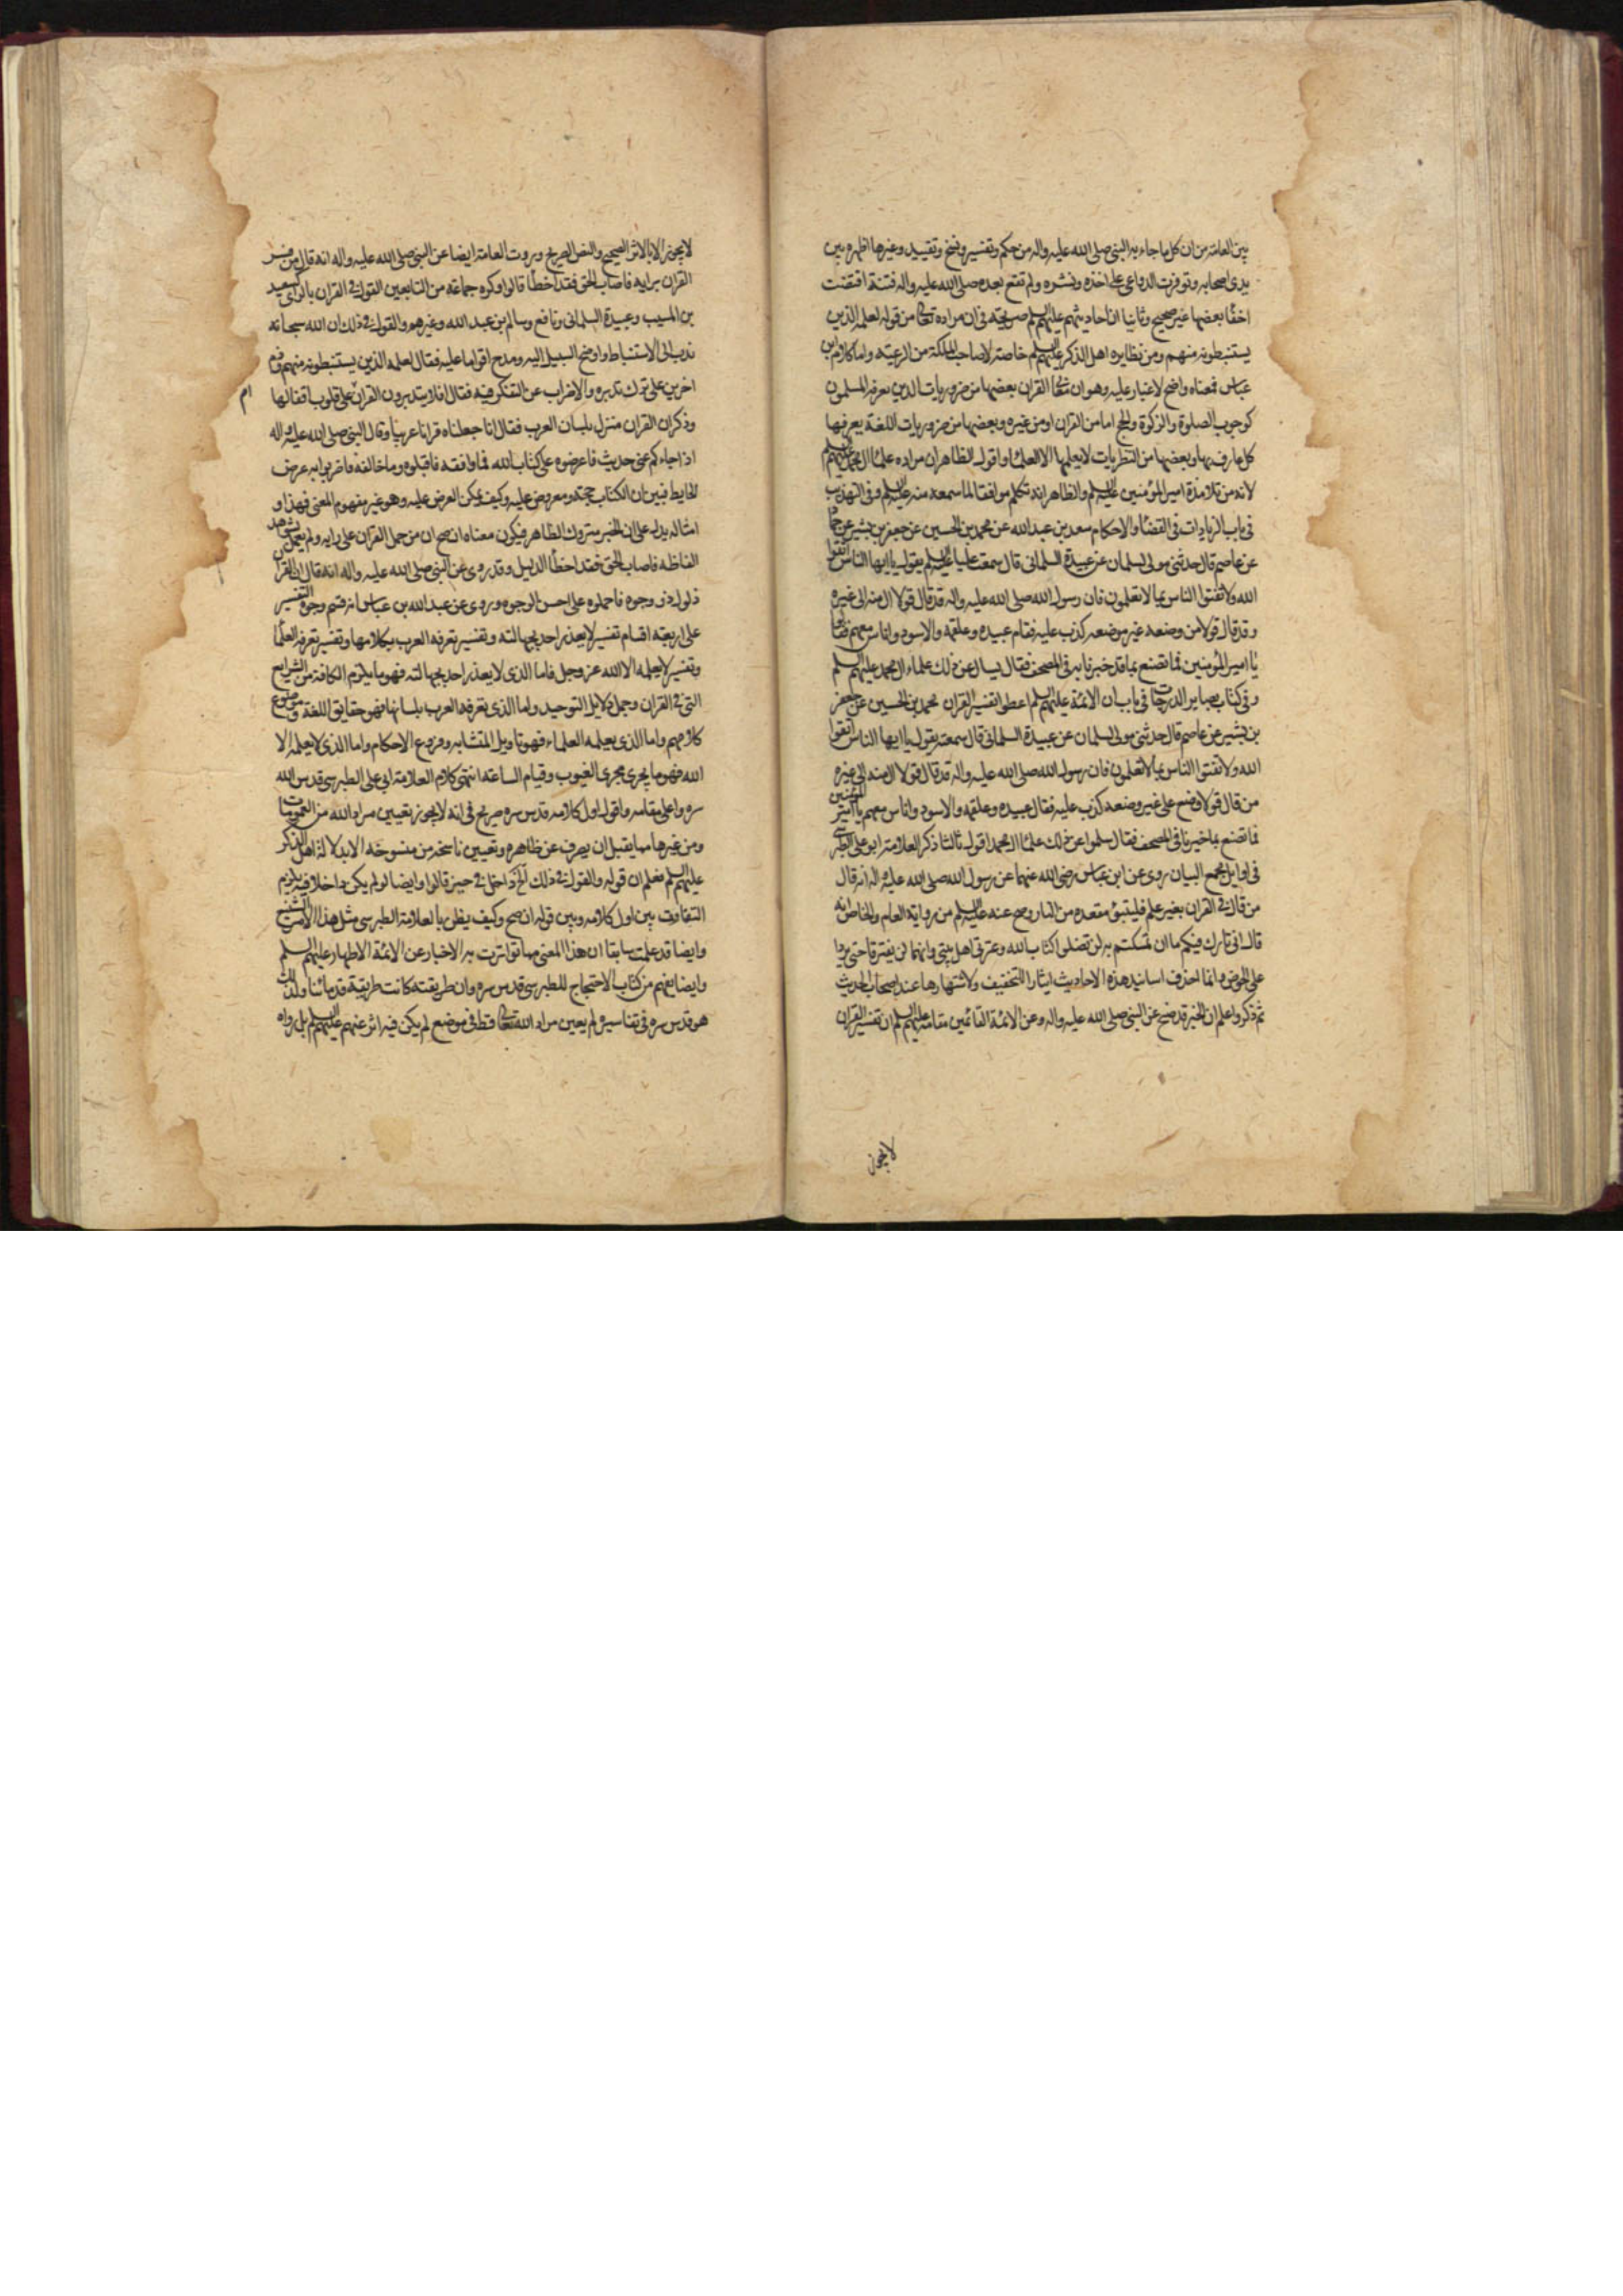 بين العامة من ان كل ما جاء به النبي صلى الله عليه واله من حكم وتفسير ونسخ وتقييد وغيرها اظهره بين
يدى اصحابه وتوفرت الدواعى على اخذه ونشره ولم تقع بعده صلى الله عليه واله فتنة اقتضت
اخفا بعضها غير صحيح وثانيا ان احاديثهم عليهم السلم صريحة فى ان مراده تعالى من قوله لعلمه الذين
يستنبطونه منهم ومن نظايره اهل الذكر عليهم السلم خاصة لا صاحب الملكة من الرعية واما كلام ابن
عباس فمعناه واضح لا غبار عليه وهو ان معانى القران بعضها من ضروريات الدين يعرفه المسلمون
كوجوب الصلوة والزكوة والحج اما من القران او من غيره وبعضها من ضروريات اللغة يعرفها
كل عارف بها وبعضها من النظريات لا يعلمها الا العلما واقول الظاهر ان مراده علما ال محمد عليهم السلم
لانه من تلامذة امير المؤمنين عليه السلم والظاهر انه تكلم موافقا لما سمعه منه عليه السلم وفى التهذيب
فى باب الزيادات فى القضا والاحكام سعد بن عبد الله عن محمد بن الحسين عن جعفر بن بشير عن حماد
عن عاصم قال حدثنى مولى لسلمان عن عبيدة السلمانى قال سمعت عليا عليه السلم يقول يا ايها الناس اتقوا
الله ولا تفتوا الناس بما لا تعلمون فان رسول الله صلى الله عليه واله قد قال قولا ال منه الى غيره
وقد قال قولا من وضعه غير موضعه كذب عليه فقام عبيده وعلقمه والاسود واناس معهم فقالوا
يا امير المؤمنين فما نصنع بما قد خبرنا به فى المصحف فقال يسال عن ذلك علماء ال محمد عليهم السلم
وفى كتاب بصاير الدرجات فى باب ان الائمة عليهم السلم اعطوا تفسير القران محمد بن الحسين عن جعفر
بن بشير عن عاصم قال حدثنى مولى لسلمان عن عبيدة السلمانى قال سمعته يقول يا ايها الناس اتقوا
الله ولا تفتوا الناس بما لا تعلمون فان رسول الله صلى الله عليه واله قد قال قولا ال منه الى غيره
من قال قولا وضع على غير وضعه كذب عليه فقال عبيده وعلقمه والاسود واناس معهم يا امير المؤمنين
فما نصنع بما خبرنا فى المصحف فقال سلوا عن ذلك علما ال محمد اقول ثالثا ذكر العلامة ابو على الطبرسى
فى اوايل مجمع البيان روى عن ابن عباس رضى الله عنهما عن رسول الله صلى الله عليه واله انه قال
من قال فى القران بغير علم فليتبوء مقعده من النار وصح عنه عليه السلم من رواية العام والخاص انه
قال انى تارك فيكم ما ان تمسكتم به لن تضلوا كتاب الله وعترتى اهل بيتى وانهما لن يفترقا حتى يردا
على الحوض وانما احذف اسانيد هذه الاحاديث ايثارا للتخفيف ولاشتهارها عند اصحاب الحديث
ثم ذكر واعلم ان الخبر قد صح عن النبى صلى الله عليه واله وعن الائمة القائمين مقامه عليهم السلم ان تفسير القران
لا يجوز
لا يجوز الا بالاثر الصحيح والنص الصريح وروت العامة ايضا عن النبى صلى الله عليه واله انه قال من فسر
القران برايه فاصاب الحق فقد اخطأ قالوا وكره جماعة من التابعين القول فى القران بالراى كسعيد
بن المسيب وعبيدة السلمانى ونافع وسالم بن عبد الله وغيرهم والقول فى ذلك ان الله سبحانه
ندب الى الاستنباط واوضح السبيل اليه ومدح اقواما عليه فقال لعلمه الذين يستنبطونه منهم وذم
اخرين على ترك تدبره والاضراب عن التفكر فيه فقال افلا يتدبرون القران على قلوب اقفالها
ام
وذكر ان القران منزل بلسان العرب فقال انا جعلناه قرانا عربيا وقال النبى صلى الله عليه واله
اذا جاءكم عنى حديث فاعرضوه على كتاب الله فما وافقه فاقبلوه وما خالفه فاضربوا به عرض
الحايط فبين ان الكتاب حجة ومعروض عليه وكيف يمكن العرض عليه وهو غير مفهوم المعنى فهذا و
امثاله يدل على ان الخبر متروك الظاهر فيكون معناه ان صح ان من حمل القران على رايه ولم يعمل بشواهد
الفاظه فاصاب الحق فقد اخطأ الدليل وقد روى عن النبى صلى الله عليه واله انه قال ان القران
ذلول ذو وجوه فاحملوه على احسن الوجوه وروى عن عبد الله بن عباس انه قسم وجوه التفسير
على اربعة اقسام تفسير لا يعذر احد بجهالته وتفسير تعرفه العرب بكلامها وتفسير تعرفه العلما
وتفسير لا يعلمه الا الله عز وجل فاما الذى لا يعذر احد بجهالته فهو ما يلزم الكافة من الشرايع
التى فى القران وجمل دلايل التوحيد واما الذى تعرفه العرب بلسانها فهو حقايق اللغة وموضوع
كلامهم واما الذى يعلمه العلماء فهو تاويل المتشابه وفروع الاحكام واما الذى لا يعلمه الا
الله فهو ما يجرى مجرى الغيوب وقيام الساعة انتهى كلام العلامة ابى على الطبرسى قدس الله
سره واعلى مقامه واقول اول كلامه قدس سره صريح فى انه لا يجوز تعيين مراد الله من العمومات
ومن غيرها مما يقبل ان يصرف عن ظاهره وتعيين ناسخه من منسوخه الا بدلالة اهل الذكر
عليهم السلم فعلم ان قوله والقول فى ذلك الخ داخل فى حيز قالوا وايضا لو لم يكن داخلا فيه يلزم
التهافت بين اول كلامه وبين قوله ان صح وكيف يظن بالعلامة الطبرسى مثل هذا الامر الشنيع
وايضا قد علمت سابقا ان هذا المعنى مما تواترت به الاخبار عن الائمة الاطهار عليهم السلم
وايضا يفهم من كتاب الاحتجاج للطبرسى قدس سره وان طريقته كانت طريقة قدمائنا ولذلك
هو قدس سره فى تفاسيره لم يعين مراد الله تعالى قط فى موضع لم يكن فيه اثر عنهم عليهم السلم بل رواه